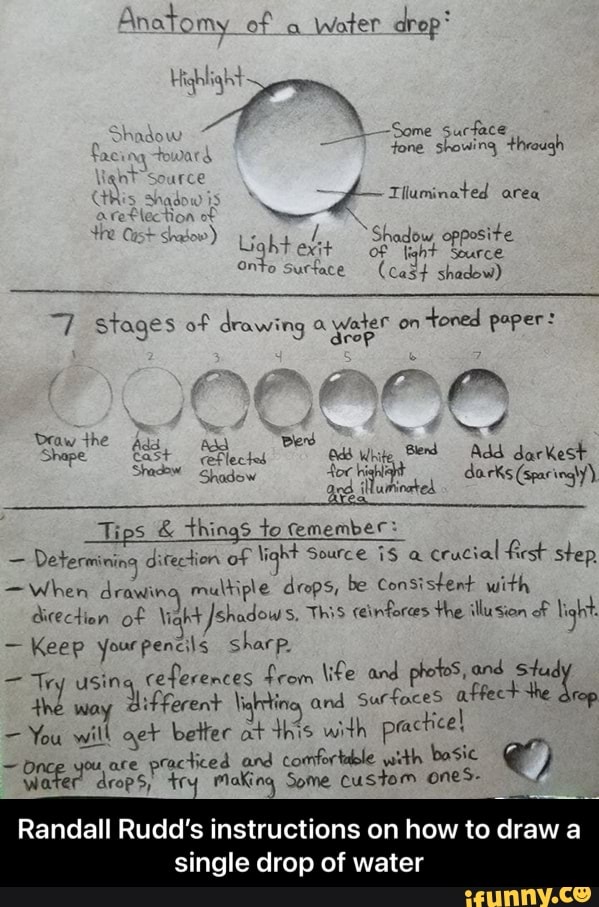 Anatomy of a Water drop:
Highlight
Shadow
facing toward
light source
(this shadow is
a reflection of
the Cast Shadow)
Some surface
tone showing through
Illuminated area
Light exit
onto surface
Shadow opposite
of light source
(cast shadow)
7 stages of drawing a water drop on toned paper:
1 2 3 4 5 6 7
Draw the
Shape
Add
cast
Shadow
Add
reflected
Shadow
Blend
Add White
for highlight
and illuminated
area
Blend
Add darkest
darks (sparingly)
Tips & things to remember:
- Determining direction of light source is a crucial first step.
- When drawing multiple drops, be consistent with
direction of light/shadows. This reinforces the illusion of light.
- Keep your pencils sharp.
- Try using references from life and photos, and study
the way different lighting and surfaces affect the drop
- You will get better at this with practice!
- Once you are practiced and comfortable with basic
water drops, try making some custom ones.
Randall Rudd's instructions on how to draw a
single drop of water
ifunny.co